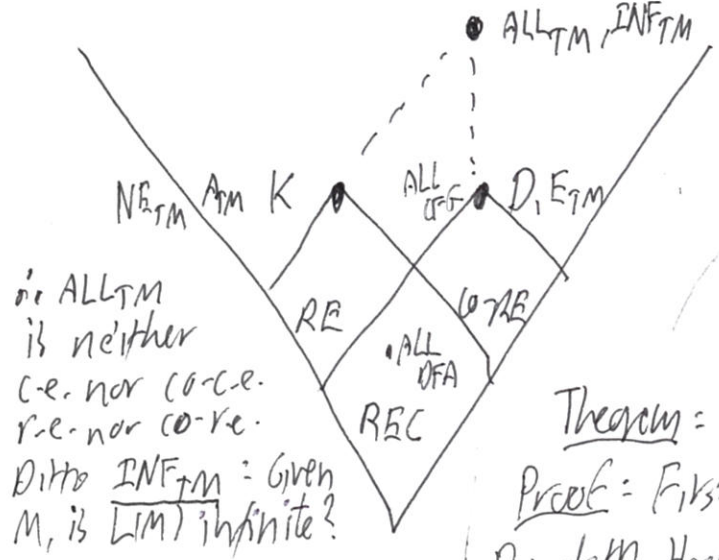 ALL_TM, INF_TM
NE_TM A_TM K ALL_CFG D, E_TM
RE co-RE
∴ ALL_TM
is neither
c.e. nor co-c.e.
r.e. nor co-re.
Ditto INF_TM: Given
M, is L(M) infinite?
.ALL_DFA
REC
Theorem:
Proof: Firs